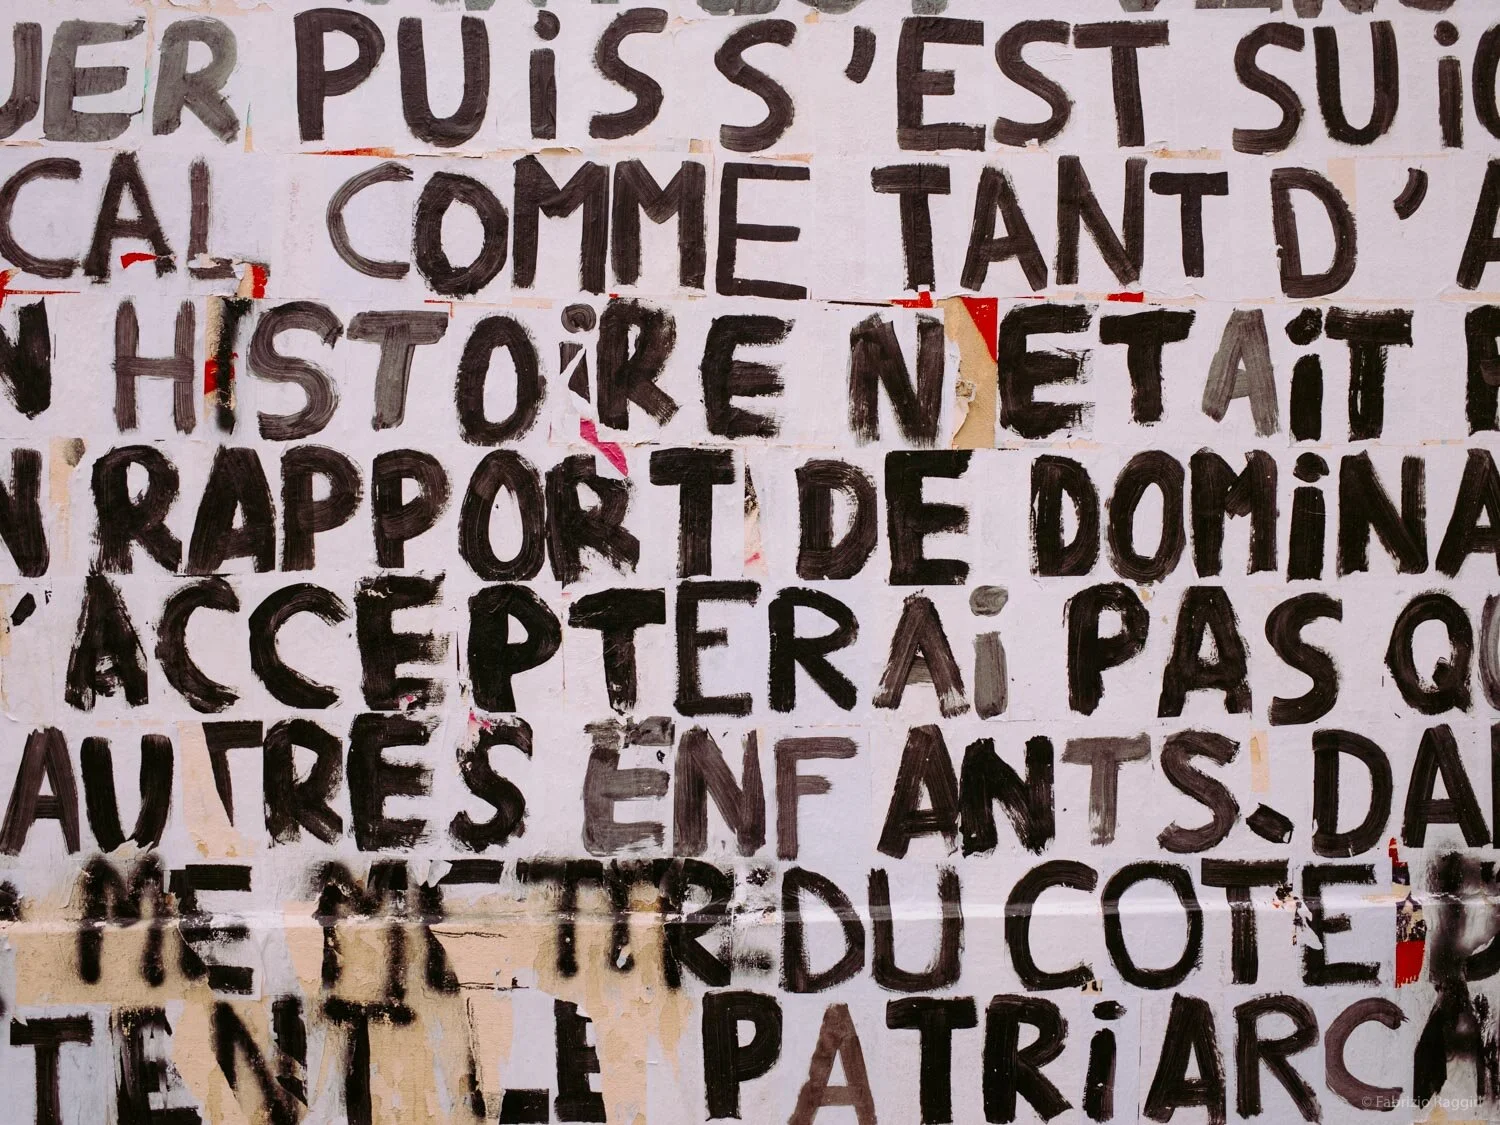 UER PUiS S'EST SUiC
CAL COMME TANT D'A
N HISTOiRE N ETAiT P
N RAPPORT DE DOMiNA
'ACCEPTERAi PAS QU
AUTRES ENFANTS. DAN
ME METTR DU COTE D
TENT LE PATRiARCA
© Fabrizio Raggiri